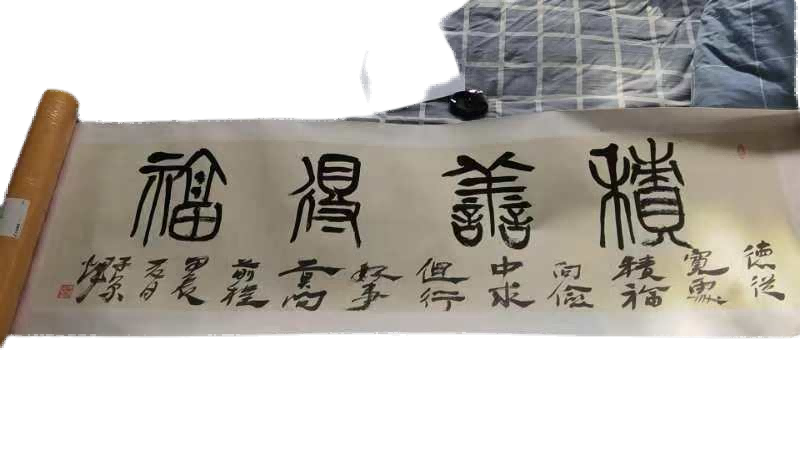 積善得福
德從
寬處
積福
向儉
中求
但行
好事
莫問
前程
甲辰